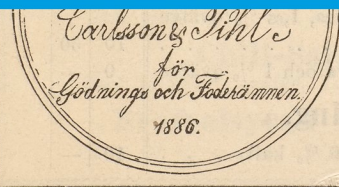 Carlsson & Pihl
för
Gödnings och Foderämnen.
1886.